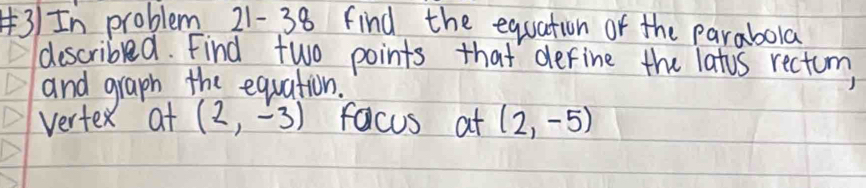 #3) In problem 21-38 find the equation of the parabola
described. Find two points that define the latus rectum,
and graph the equation.
Vertex at (2, -3) focus at (2, -5)